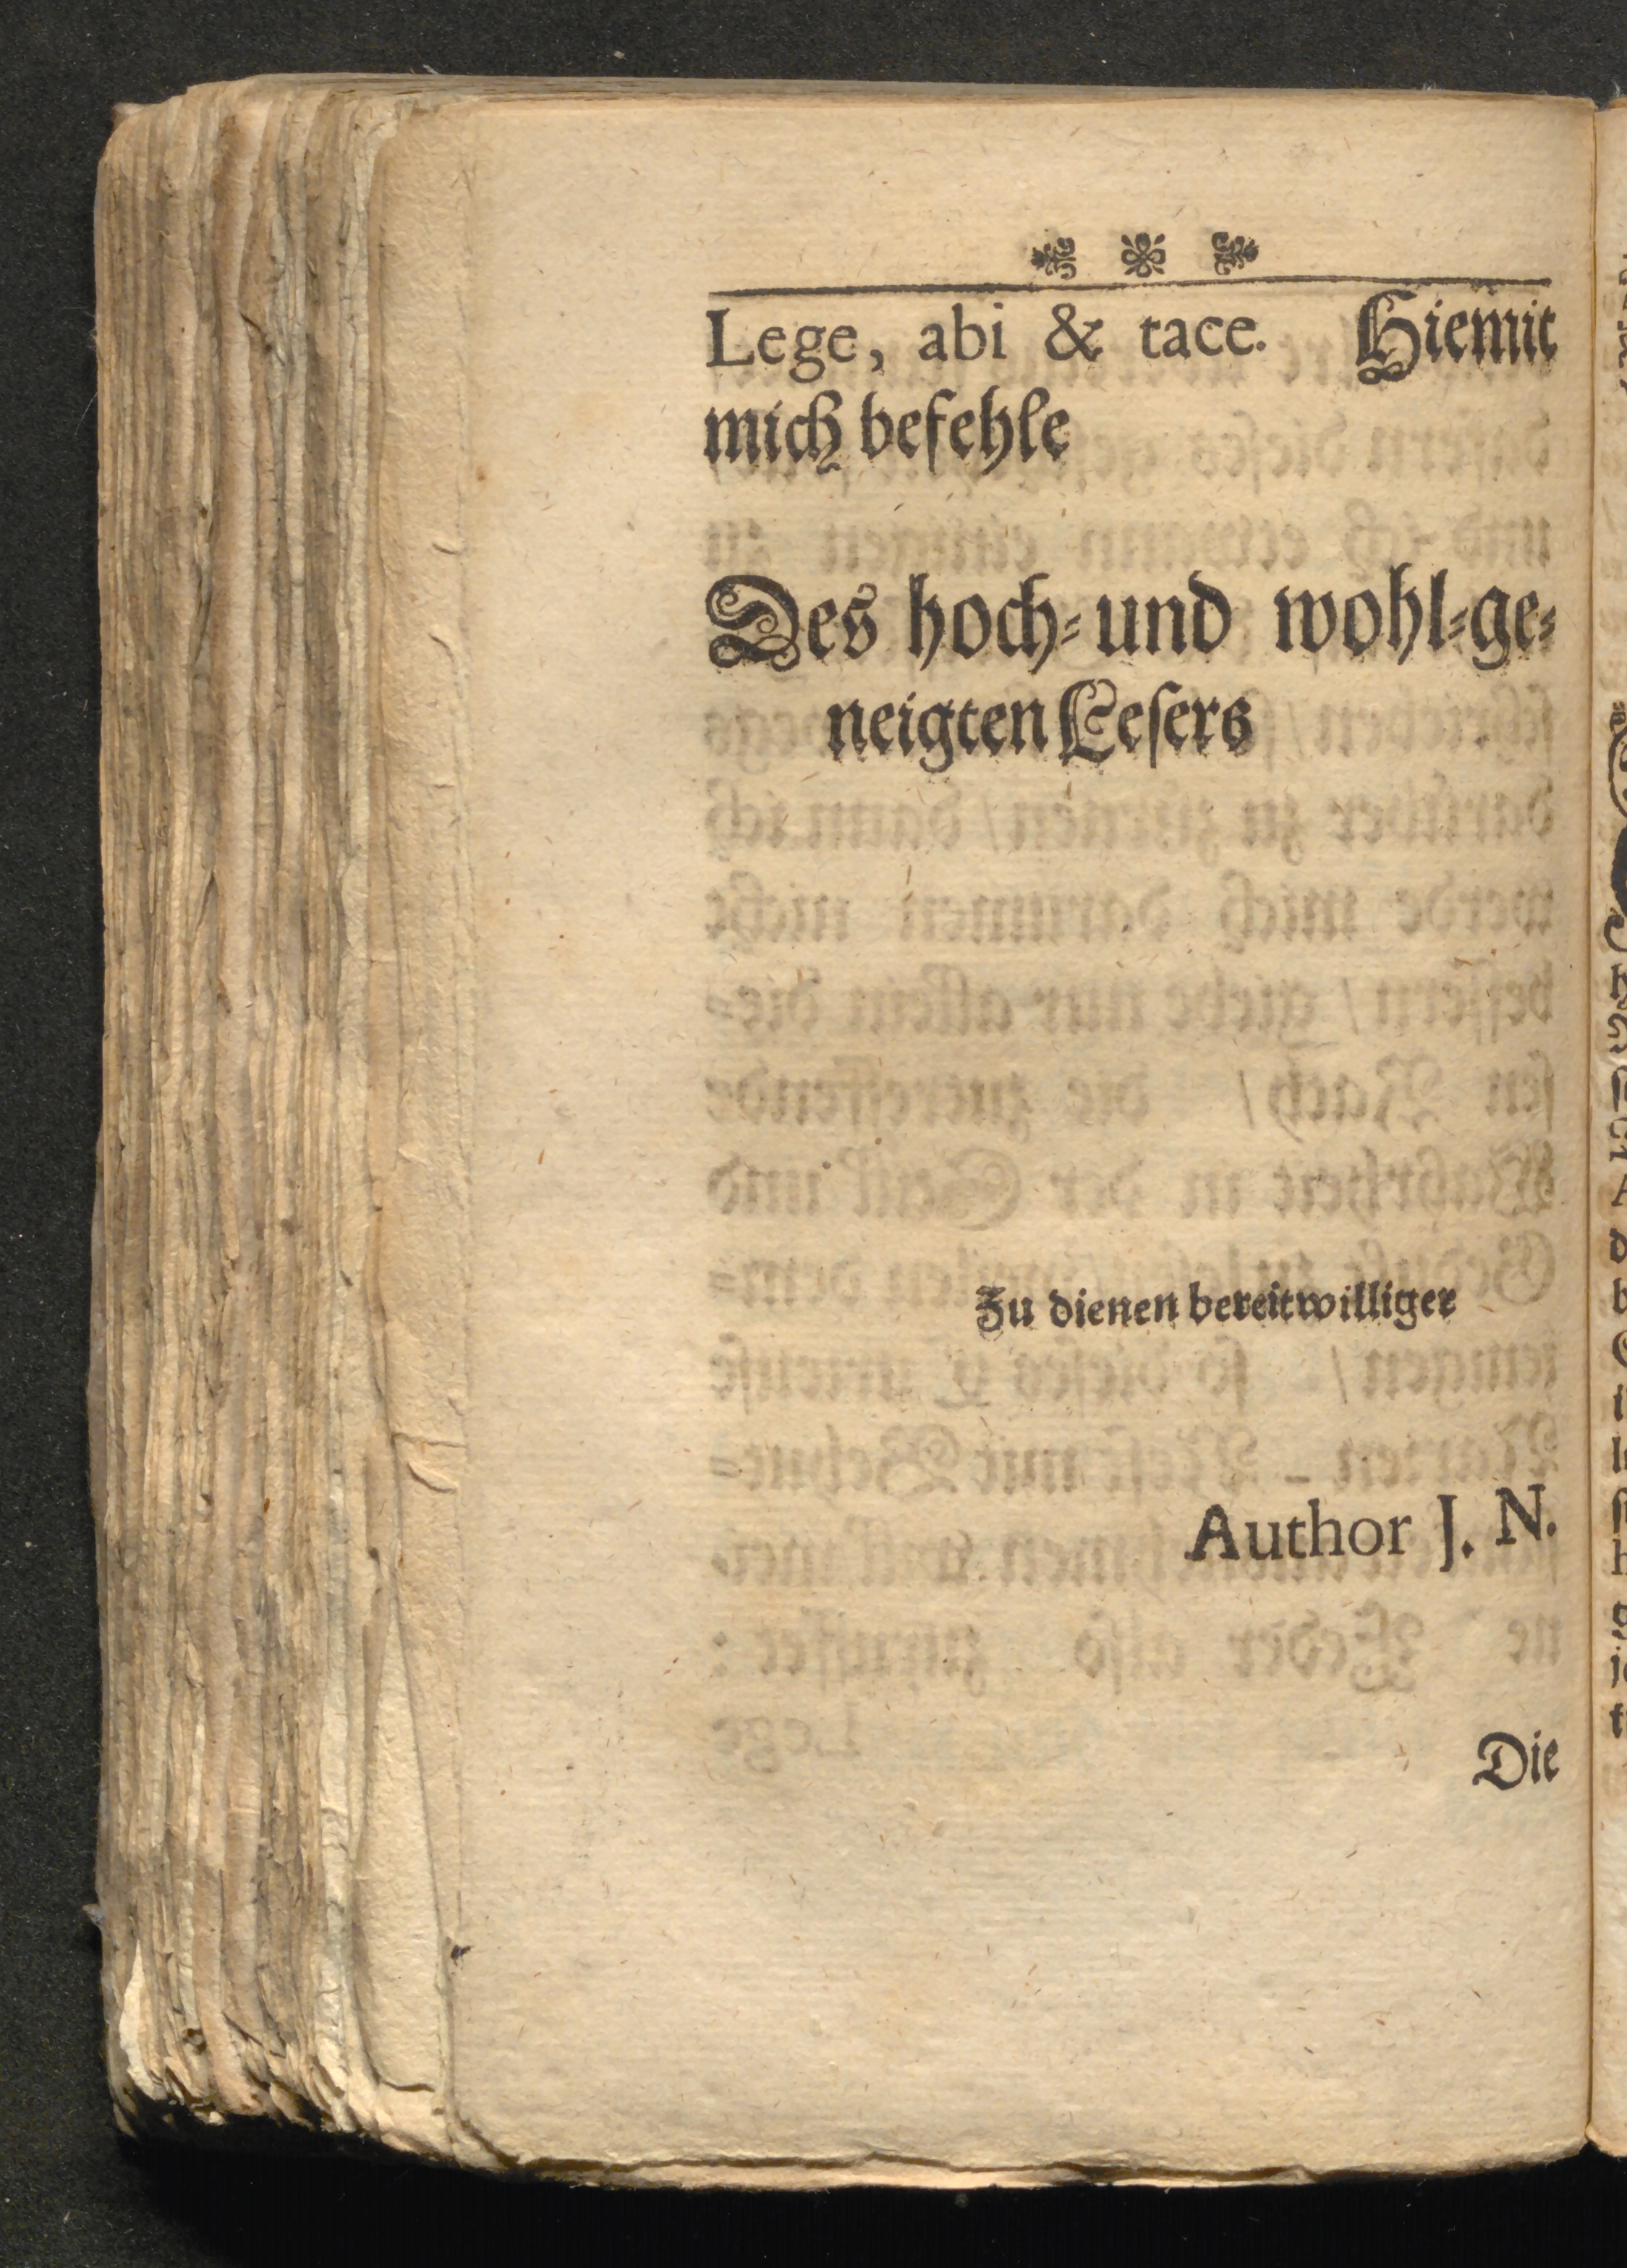 Lege, abi & tace. Hiemit
mich befehle
Des hoch- und wohl-ge-
neigten Leſers
Zu dienen bereitwilliger
Author J. N.
Die